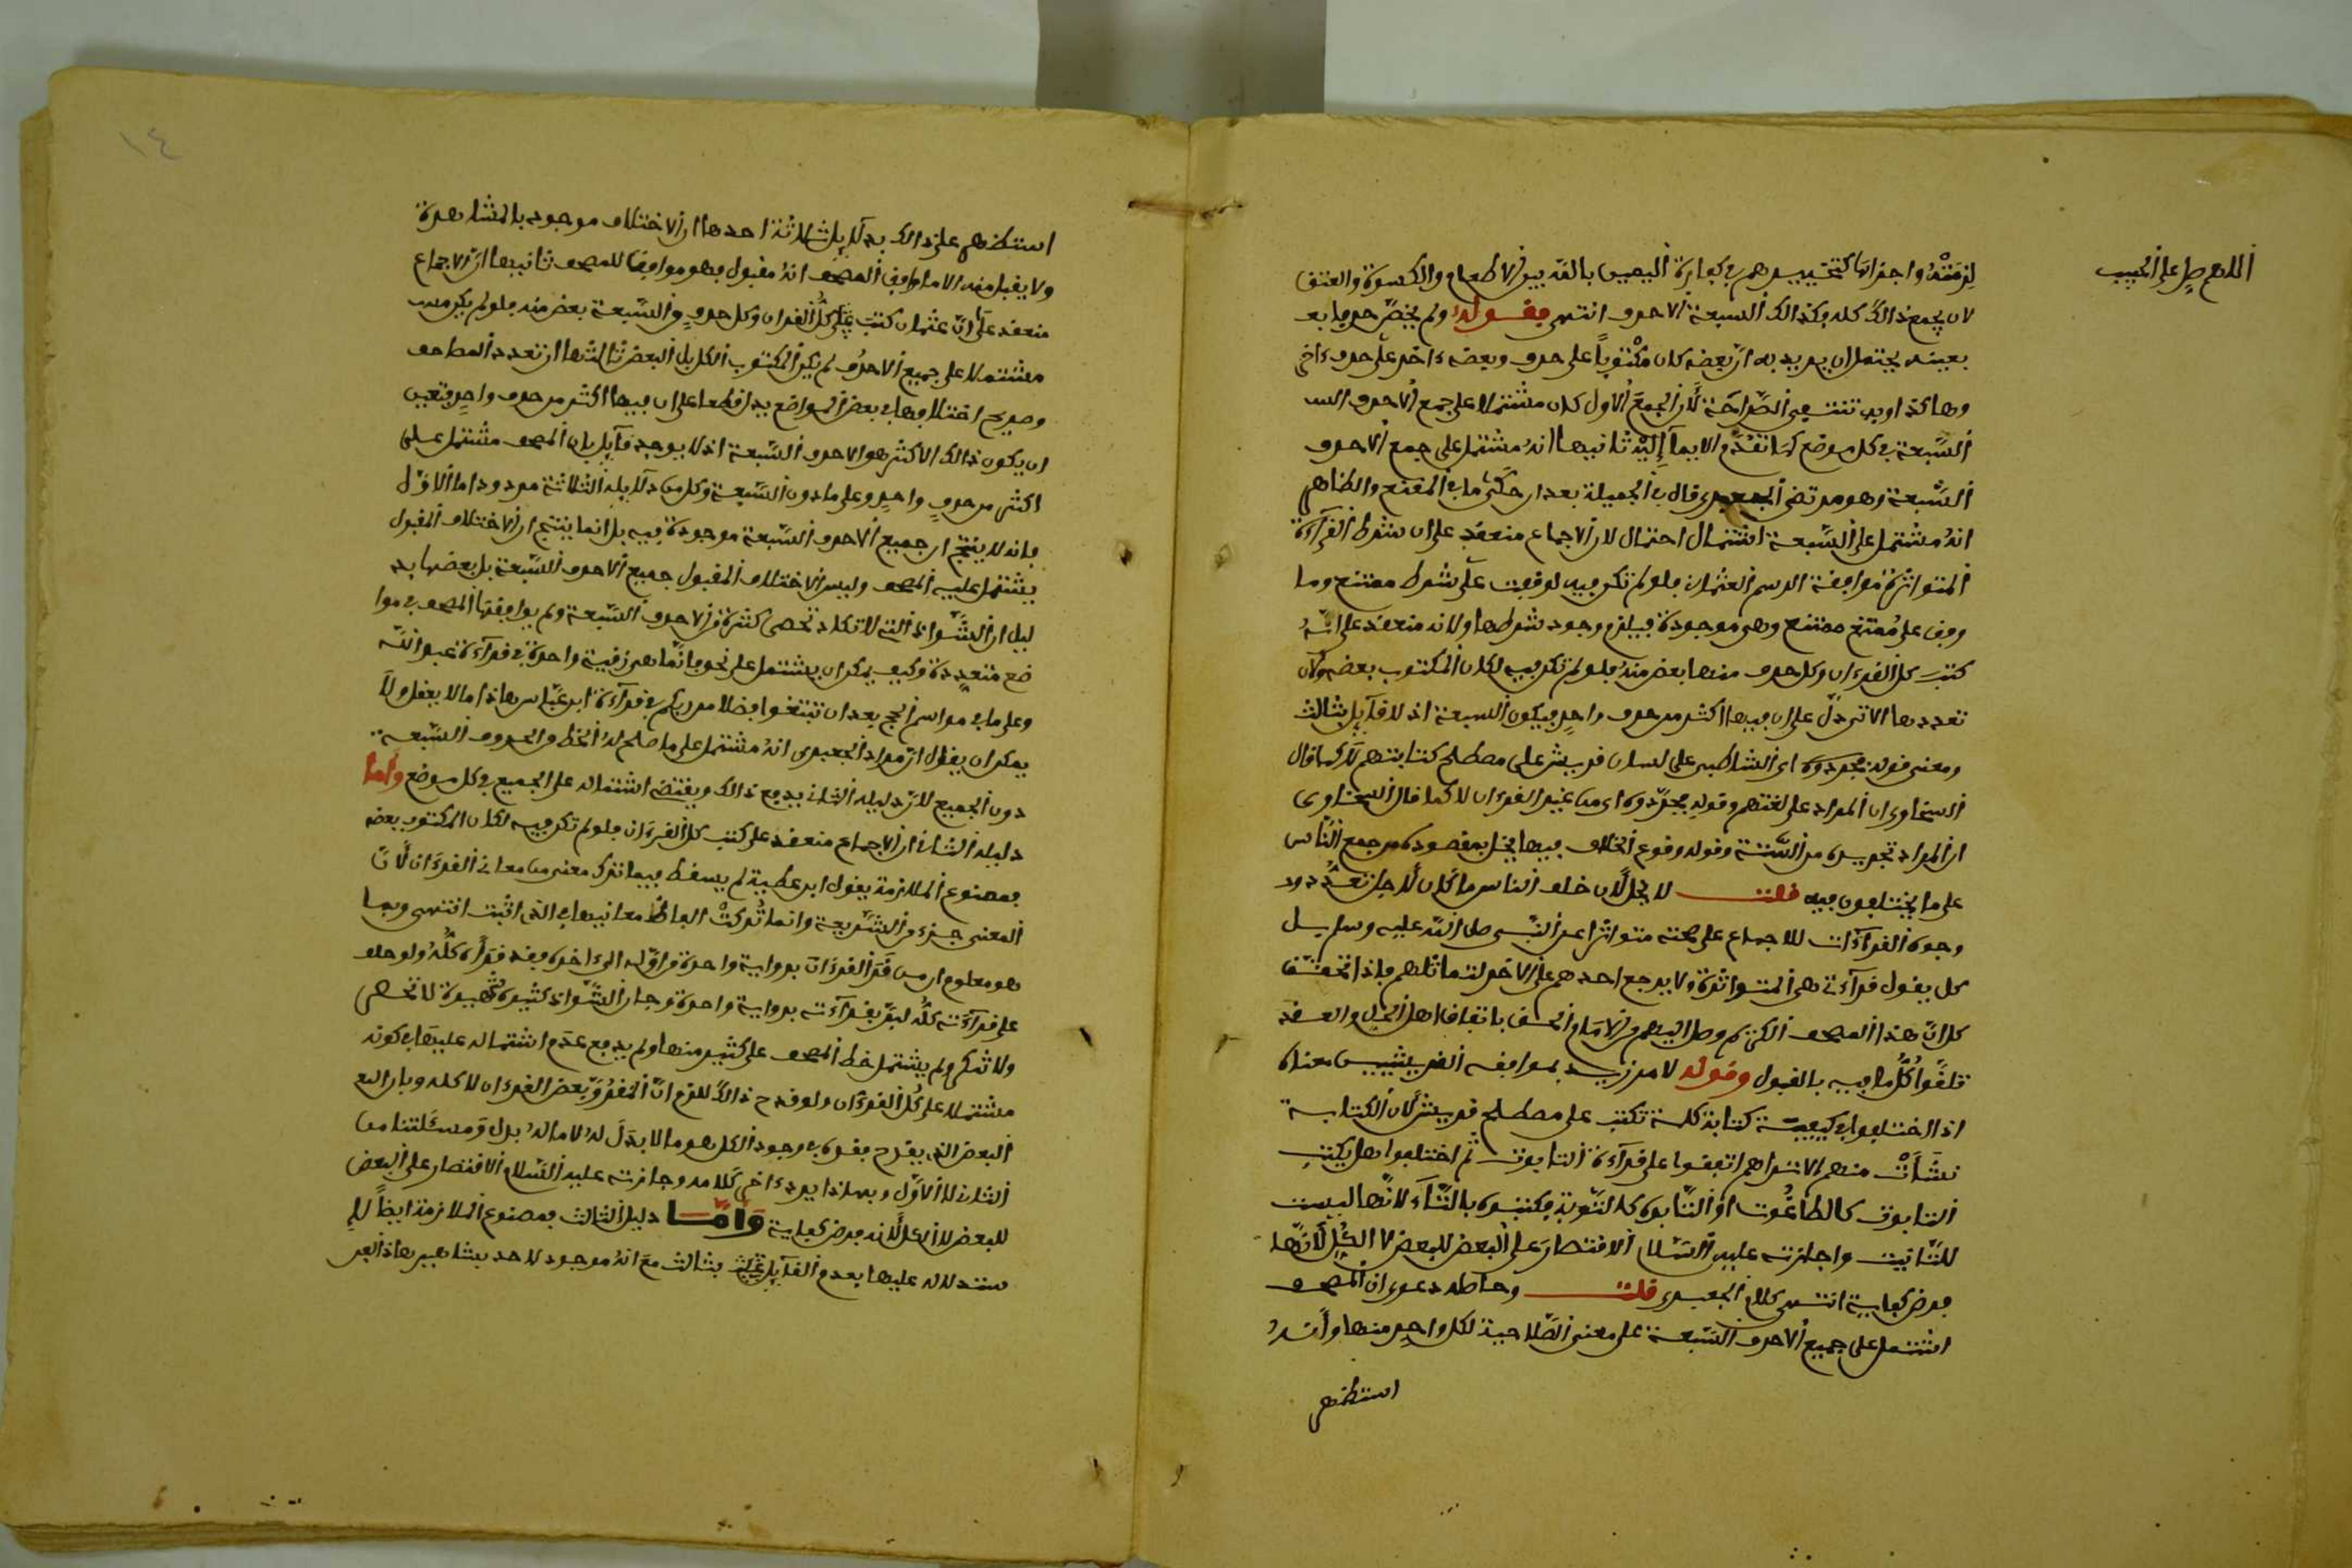 اللهم صل على الحبيب
لزمته واجزاته كتخييرهم في كفارة اليمين بالله بين الاطعام والكسوة والعتق
لان يجمع ذالك كله وكذالك السبعة الاحرف انتهى فقوله ولم يخص حرفا بعـ
بعينه يحتمل ان يريد به ان بعضه كان مكتوبا على حرف وبعضه ءاخر على حرف ءاخر
تنتفي الصراحة لان الجمع الاول كان مشتملا على جمع الاحرف الســ
السبعة في كل موضع كما تقدم والايماء اليه ثانيها انه مشتمل على جمع الاحرف
السبعة وهو مرتضى الجعبري قال في الجميلة بعد ان حكى ما في المقنع والظاهر
انه مشتمل على السبعة اشتمال احتمال لان الاجماع منعقد على ان شرط القرآءة
المتواترة موافقة الرسم العثماني فلو لم تكن فيه لوقفت على شرط ممتنع وما
وقف على ممتنع ممتنع وهي موجودة فيلزم وجود شرطها ولانه منعقد على انه
كتب كل القرءان وكل حرف منها بعض منه فلو لم تكن فيه لكان المكتوب بعضه ولان
تعددها الاتي دل على ان فيها اكثر من حرف واحد فيكون السبعة اذ لا قآيل بثالث
ومعنى قوله مجردوه اي الشاطبي على لسان قريش على مصطلح كتابتهم لا كما قال
السخاوي ان المراد على لغتهم وقوله مجردوه اي من غير القرءان لا كما قال السخاوي
ان المراد تجريده من السنة وقوله وقوع الخلاف فيها يخل بمقصوده من جمع الناس
على ما يختلفون فيه قلت لا يخل لان خلف الناس ما كان لاجل تعدد
وجوه القرآءات للاجماع على صحته متواترا عن النبي صلى الله عليه وسلم بل
كل يقول قرآءتي هي المتواترة ولا يرجع احدهم على الاخر لتماثلهم فاذا تحقق
كل ان هذا المصحف الذي وصل اليهم من الامام الحق باتفاق اهل الحل والعقد
تلقوا كل ما فيه بالقبول وقوله لا من زيد بموافقة القريشيين معناه
اذا اختلفوا في كيفية كتابة كلمة تكتب على مصطلح قريش لان الكتابة
نشأت منهم الا تراهم اتفقوا على قرآءة التابوت ثم اختلفوا هل يكتب
التابوت كالطاغوت او التابوه كالتوبة فكتبوه بالتاء لانها ليست
للتانيث واجازته عليه السلام الاقتصار على البعض للبعض لا الكل لانها
فرض كفاية انتهى كلام الجعبري قلت وحاصله دعوى ان المصحف
اشتمل على جميع الاحرف السبعة على معنى الصلاحية لكل واحد منها وانه
استظهر
١٤
استظهر على ذالك بدلايل ثلاثة احدها ان الاختلاف موجود بالمشاهدة
ولا يقبل منه الا ما وافق المصحف انه مقبول وهو موافق للمصحف ثانيها ان الاجماع
منعقد على ان عثمان كتب كل القرءان وكل حرف من السبعة بعض منه فلو لم يكن
مشتملا على جميع الاحرف لم يكن المكتوب الكل بل البعض ثالثها ان تعدد المصاحف
وصريح اختلافها في بعض المواضع يدل قطعا على ان فيها اكثر من حرف واحد فتعين
ان يكون ذالك الاكثر هو الاحرف السبعة اذ لا يوجد قآيل بان المصحف مشتمل على
اكثر من حرف واحد وعلى ما دون السبعة وكل من دلايله الثلاثة مردود اما الاول
فانه لا ينتج ان جميع الاحرف السبعة موجودة فيه بل انما ينتج ان الاختلاف المقبول
يشتمل عليه المصحف وليس الاختلاف المقبول جميع الاحرف السبعة بل بعضها بد
ليل ان الشواذ التي لا تكاد تحصى كثرة من الاحرف السبعة ولم يوافقها المصحف في موا
ضع متعددة وكيف يمكن ان يشتمل على نحو فانما هي زقية واحدة في قرآءة عبد الله
وعلى ما في مواسم الحج بعد ان تبتغوا فضلا من ربكم في قرآءة ابن عباس هاذا ما لا يعقل ولا
يمكن ان يقول ان مراد الجعبري انه مشتمل على ما صلح له الخط من الحروف السبعة
دون الجميع لان دليله الثاني يدفع ذالك ويقتضي اشتماله على الجميع في كل موضع واما
دليله الثاني ان الاجماع منعقد على كتب كل القرءان فلو لم تكن فيه لكان المكتوب بعضه
فممنوع الملازمة يقول ابن عطية لم يسقط فيما ترك معنى من معاني القرءان لان
المعنى جزء من الشريعة وانما تركت الفاظ معانيها في الذي اثبت انتهى وبما
هو معلوم ان من قرأ القرءان برواية واحدة من اوله الى ءاخره فقد قرأه كله ولو حلف
على قرآءته كله لبر بقرآءته برواية واحدة وجل الشواذ كثيرة شهيرة لا تحصى
ولا شك ولم يشتمل خط المصحف على كثير منها ولم يدفع عدم اشتماله عليها في كونه
مشتملا على كل القرءان ولو قدح ذالك للزم ان المقرو بعض القرءان لا كله وبان
البعض الذي يقدح فقده في وجود الكل هو ما لا بدل له لا ما له بدل ومسئلتنا من
الثاني لا الاول وبهاذا يرد ءاخر كلامه وجازته عليه السلام الاقتصار على البعض
للبعض لا الكل لانه فرض كفاية واما دليل الثالث فممنوع الملازمة ايضا للا
ستدلال عليها بعدم القآيل بثالث مع انه موجود لاحد